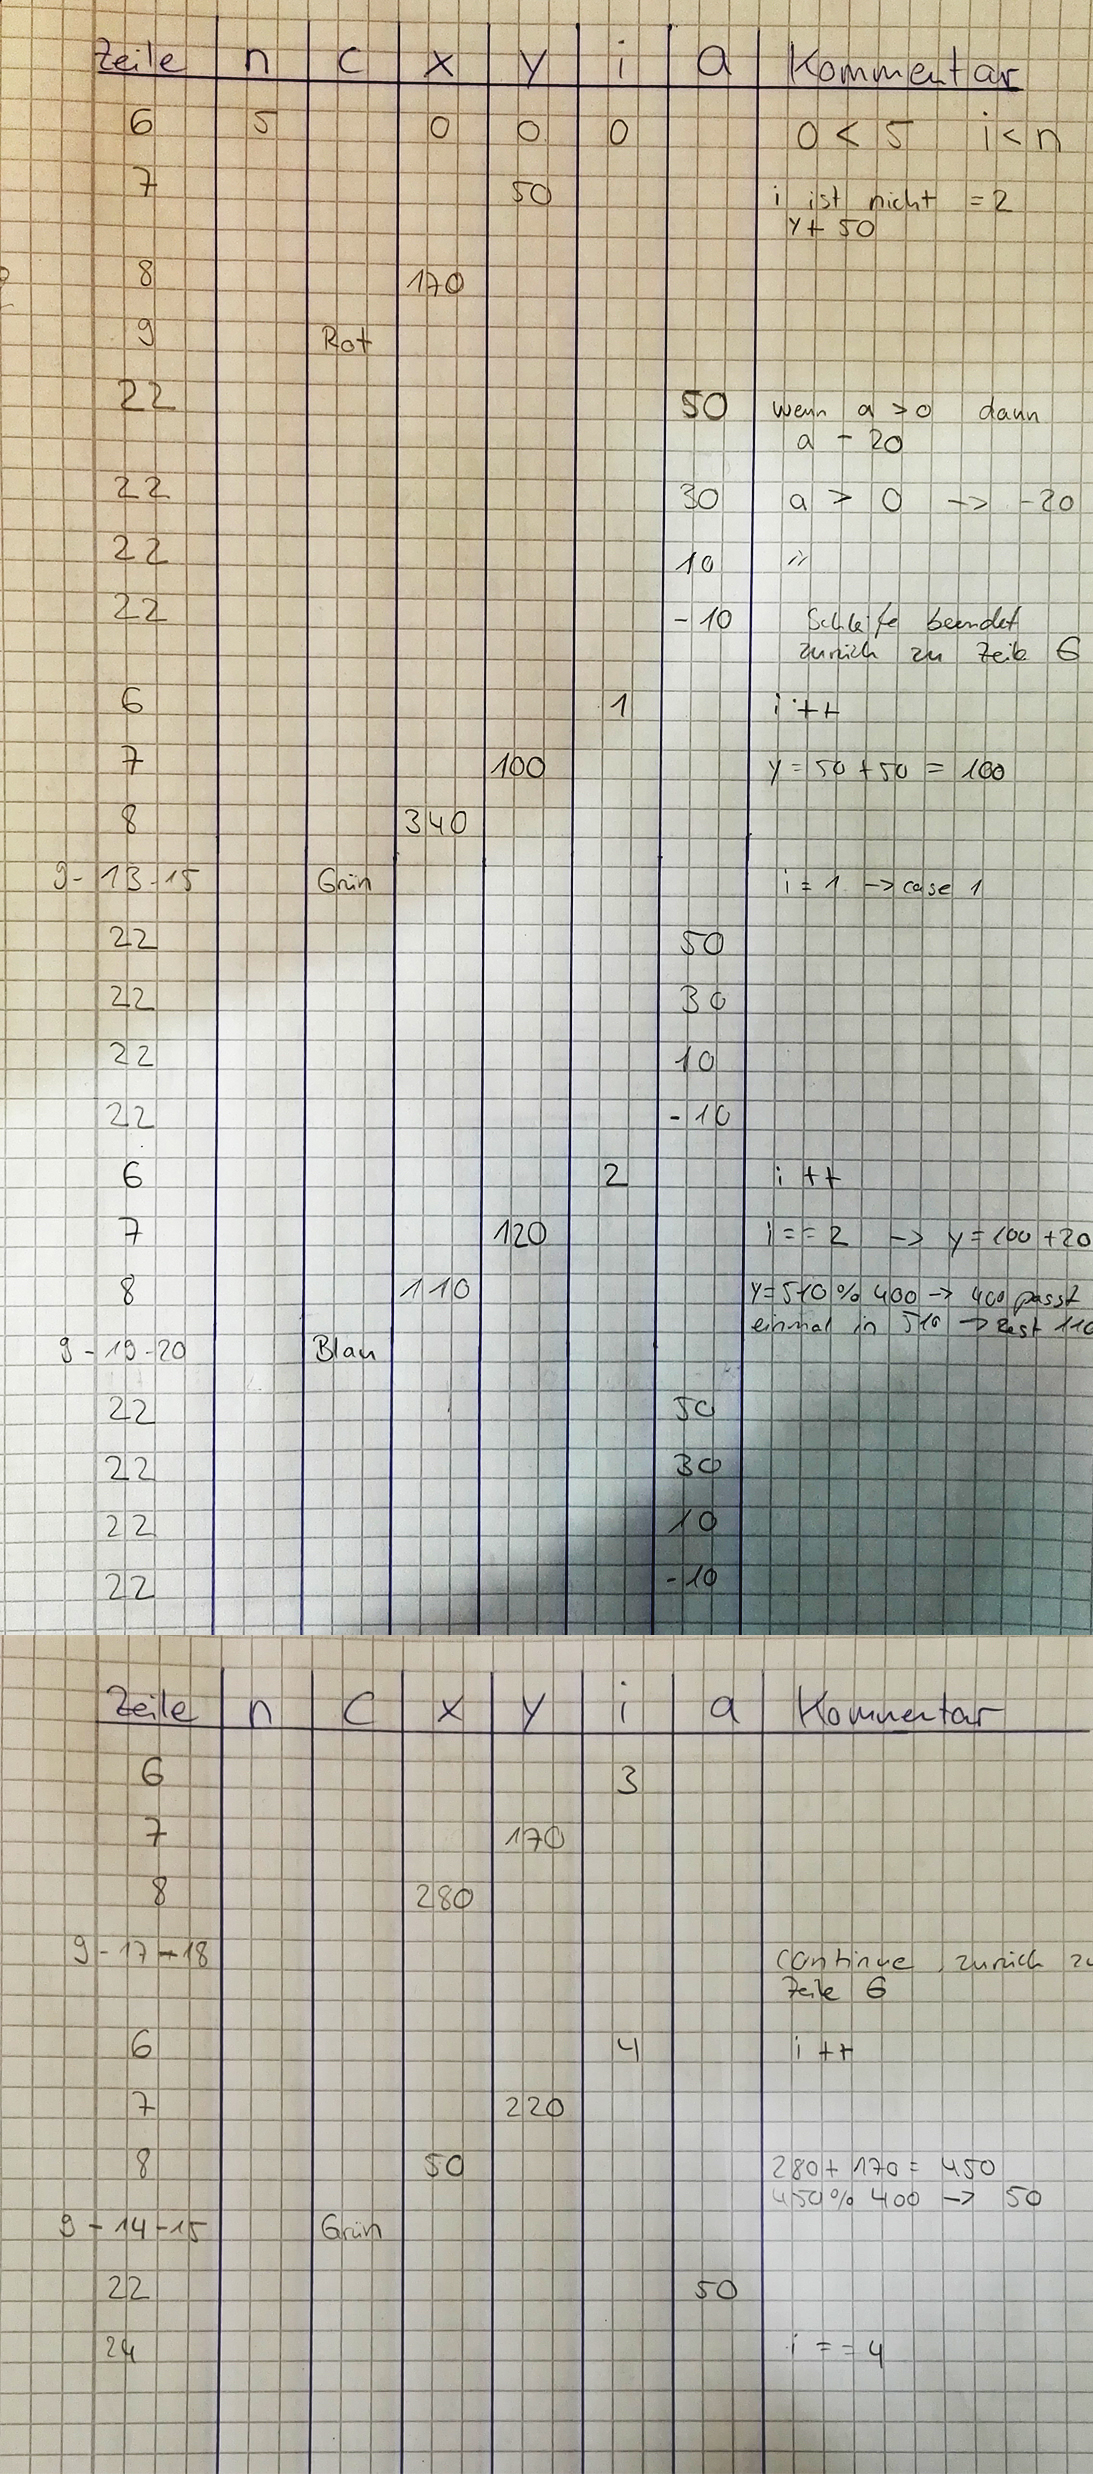 Zeile n C x y i a Kommentar
6 5 0 0 0 0 < 5 i < n
7 50 i ist nicht = 2
y + 50
8 170
9 Rot
22 50 wenn a > 0 dann
a - 20
22 30 a > 0 -> -20
22 10 "
22 -10 Schleife beendet
zurück zu Zeile 6
6 1 i ++
7 100 y = 50 + 50 = 100
8 340
9 - 13 - 15 Grün i = 1 -> case 1
22 50
22 30
22 10
22 -10
6 2 i ++
7 120 i == 2 -> y = 100 + 20
8 110 y = 510 % 400 -> 400 passt
einmal in 510 -> Rest 110
9 - 19 - 20 Blau
22 50
22 30
22 10
22 -10
Zeile n C x y i a Kommentar
6 3
7 170
8 280
9 - 17 - 18 continue, zurück zu
Zeile 6
6 4 i ++
7 220
8 50 280 + 170 = 450
450 % 400 -> 50
9 - 14 - 15 Grün
22 50
24 i == 4